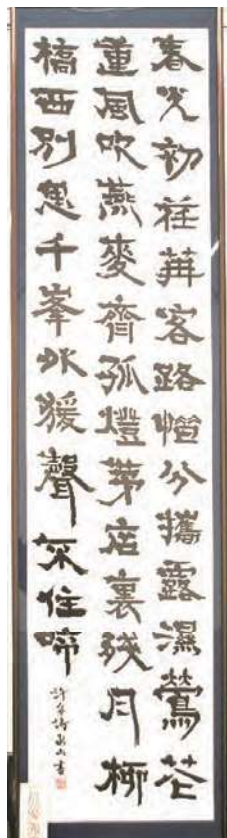 春光初荏苒客路惜分攜露濕鶯花
重風吹燕麥齊孤燈茅店裏殘月柳
橋西別思千峯外猨聲不住啼